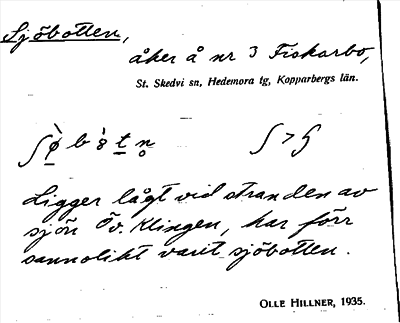 Sjöbotten,
åker å nr 3 Fiskarbo,
St. Skedvi sn, Hedemora tg, Kopparbergs län.
ʃ > ʂ
Ligger lågt vid stranden av
sjön Öv. Klingen, har förr
sannolikt varit sjöbotten.
OLLE HILLNER, 1935.